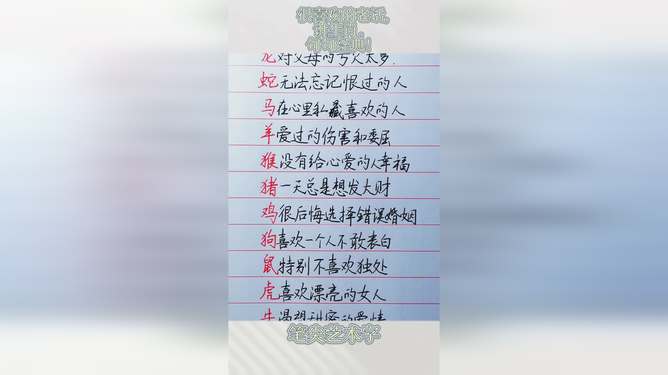 很喜欢的老话,
龙对父母的亏欠太多.
蛇无法忘记恨过的人
马在心里私藏喜欢的人
羊爱过的伤害和委屈
猴没有给心爱的人幸福
猪一天总是想发大财
鸡很后悔选择错误婚姻
狗喜欢一个人不敢表白
鼠特别不喜欢独处
虎喜欢漂亮的女人
牛渴望甜蜜的爱情
绝美艺术字